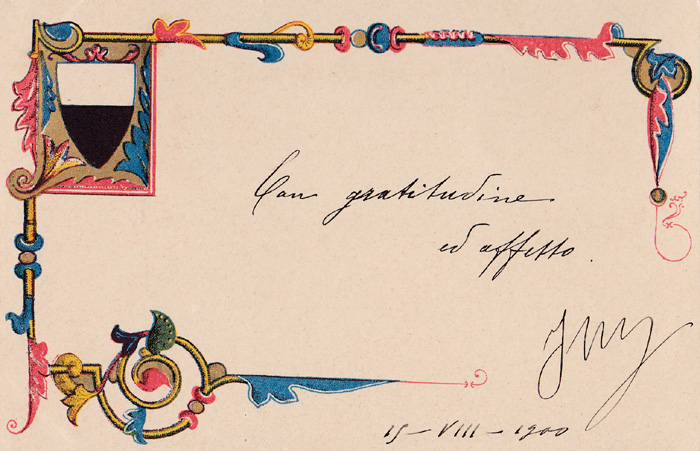 Con gratitudine
ed affetto.
15 – VIII – 1900